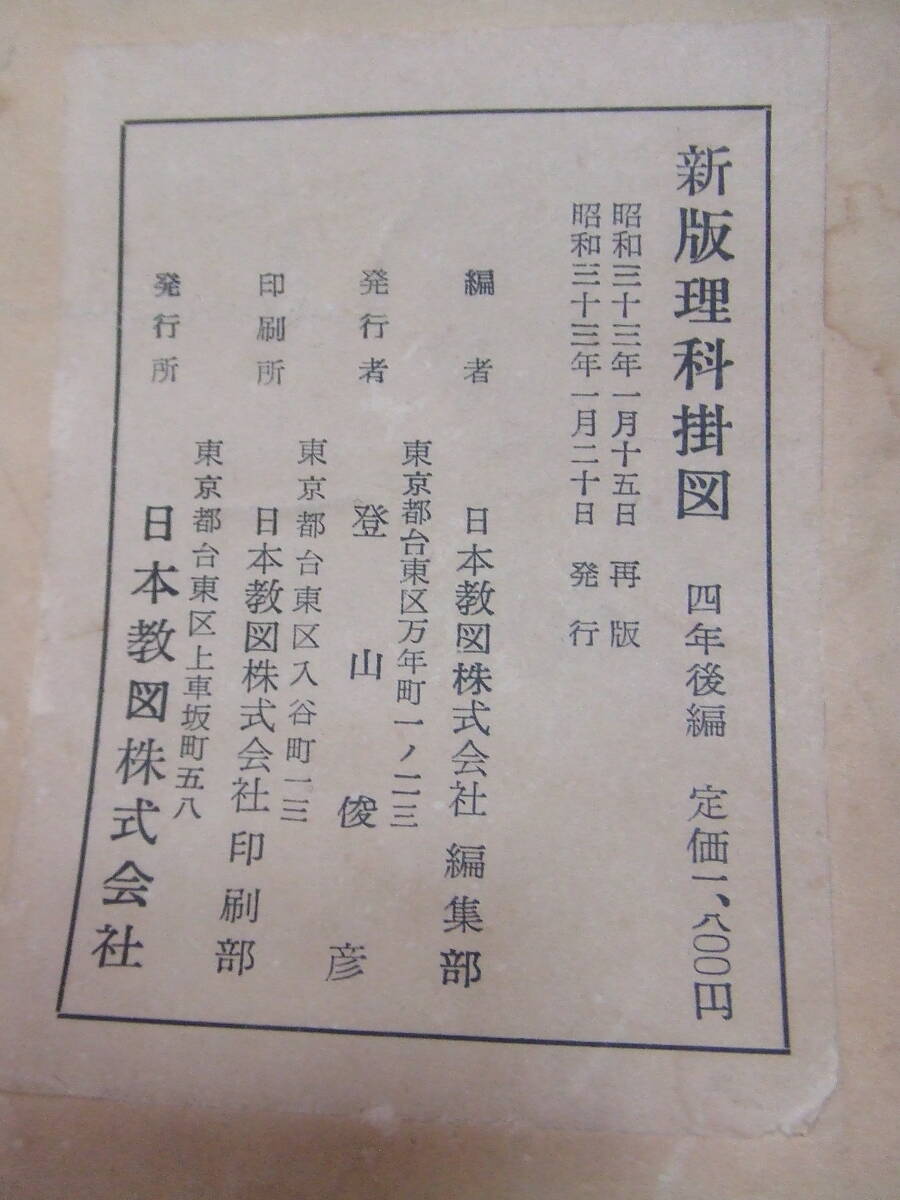 新版理科掛図 四年後編 定価一、八〇〇円
昭和三十三年一月十五日 再版
昭和三十三年一月二十日 発行
編者 日本教図株式会社 編集部
東京都台東区万年町一ノ二三
発行者 登山俊彦
東京都台東区入谷町一三
印刷所 日本教図株式会社 印刷部
東京都台東区上車坂町五八
発行所 日本教図株式会社